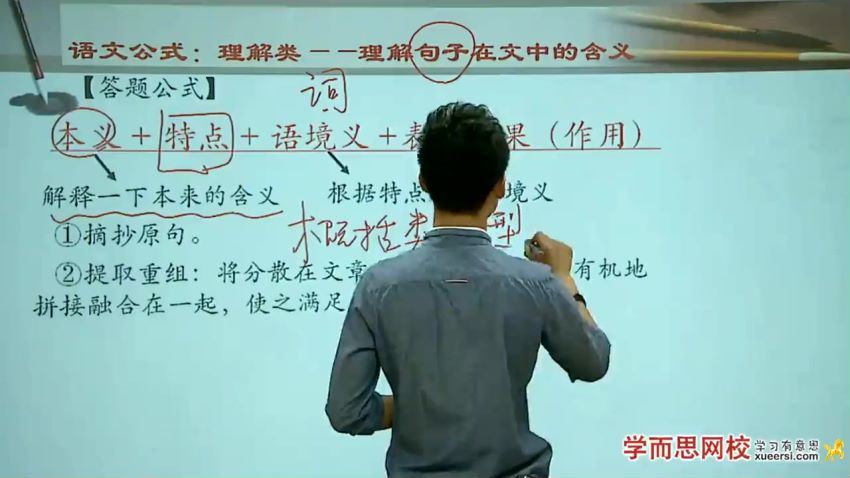 语文公式：理解类－－理解句子在文中的含义
【答题公式】
词
本义＋特点＋语境义＋表 果（作用）
解释一下本来的含义 根据特点 境义
①摘抄原句。
概括类 型
②提取重组：将分散在文章 有机地
拼接融合在一起，使之满足
学而思网校 学习有意思
xueersi.com